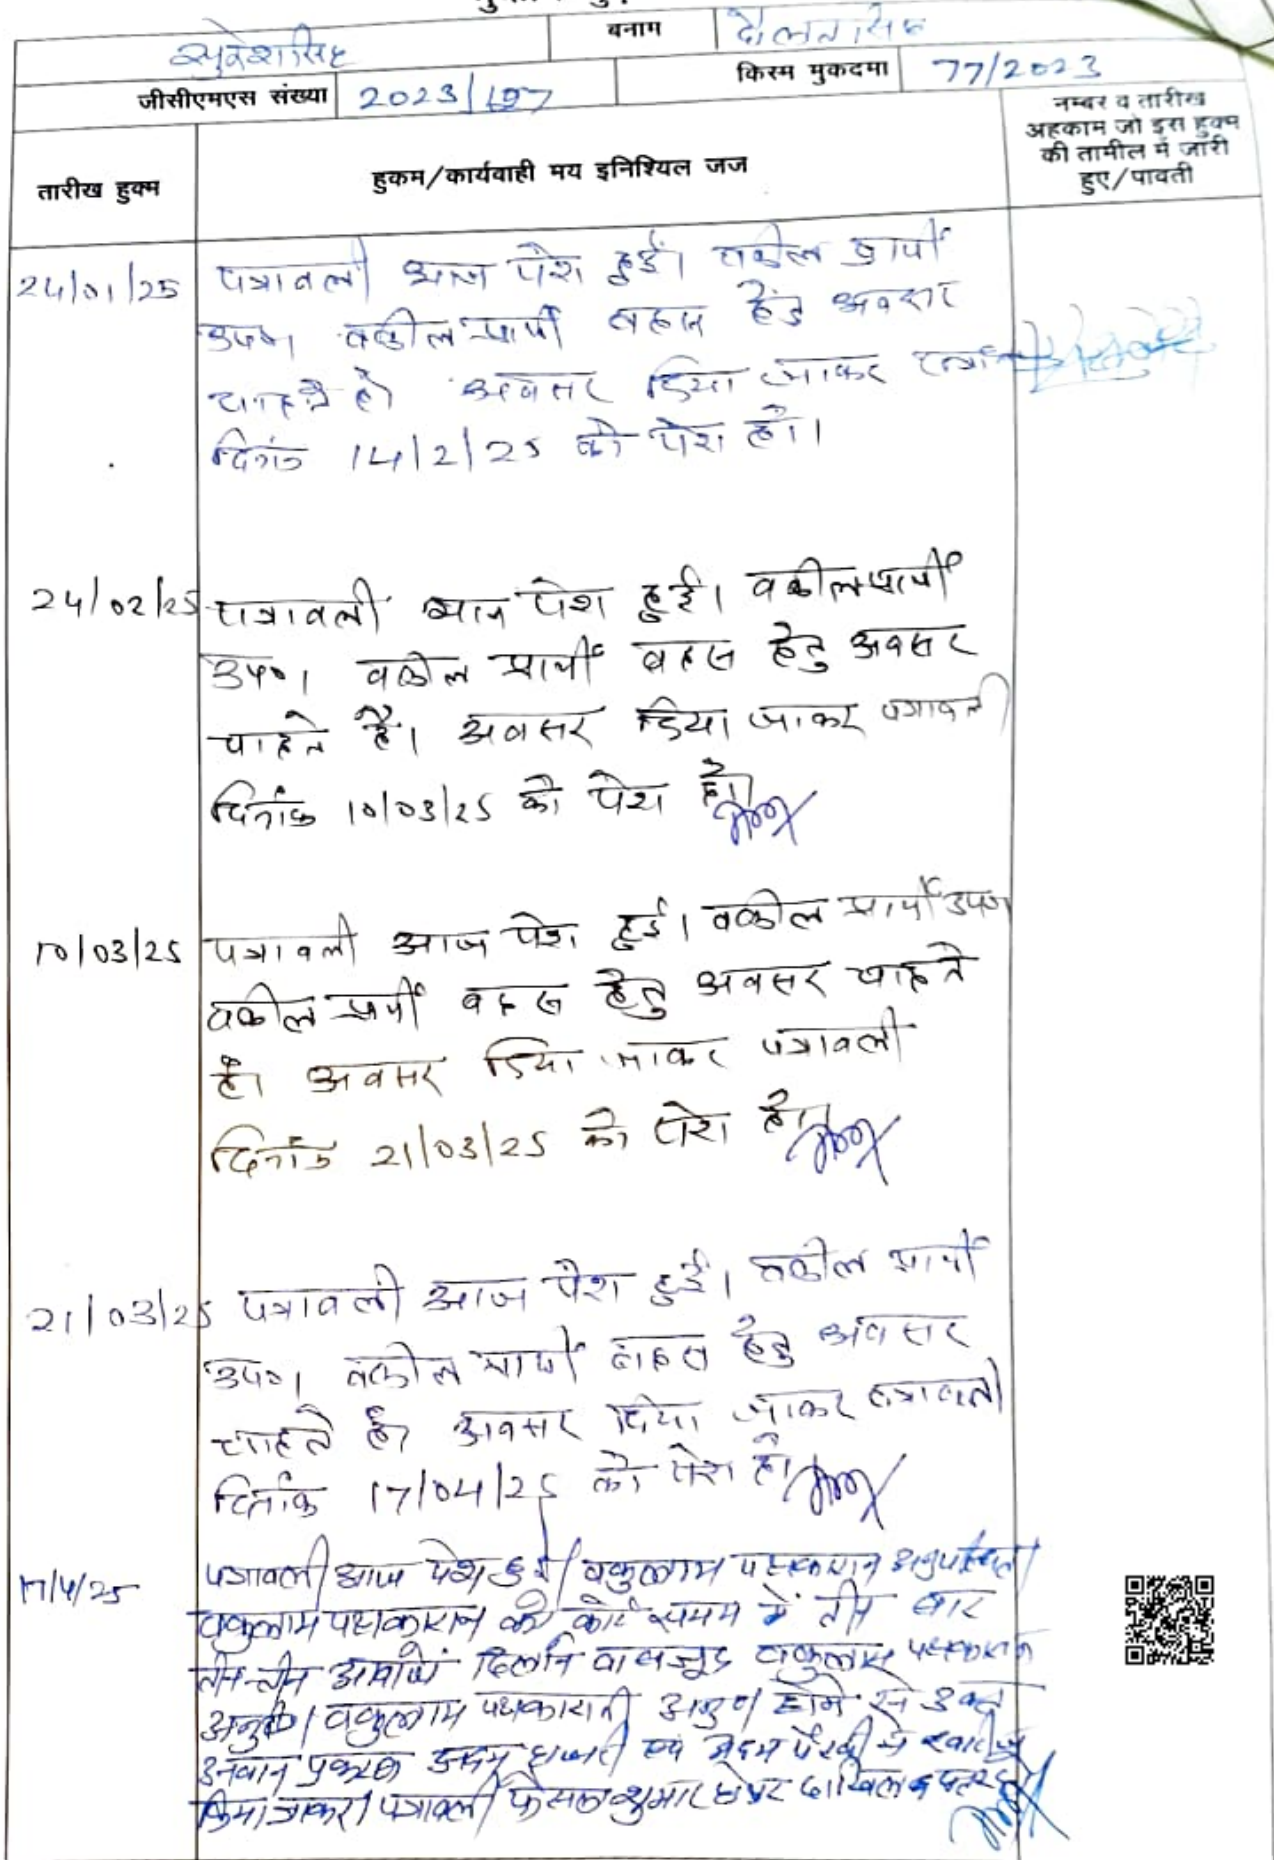 सुरेशसिंह बनाम दौलतसिंह
जीसीएमएस संख्या 2023/197 किस्म मुकदमा 77/2023
तारीख हुक्म
हुकम/कार्यवाही मय इनिश्यिल जज
नम्बर व तारीख
अहकाम जो इस हुक्म
की तामील में जारी
हुए/पावती
24/01/25 पत्रावली आज पेश हुई। वकील प्रार्थी
उप०। वकील प्रार्थी बहस हेतु अवसर
चाहते है। अवसर दिया जाकर
दिनांक 14/2/25 को पेश हो।
24/02/25 पत्रावली आज पेश हुई। वकील प्रार्थी
उप०। वकील प्रार्थी बहस हेतु अवसर
चाहते है। अवसर दिया जाकर पत्रावली
दिनांक 10/03/25 को पेश हो।
10/03/25 पत्रावली आज पेश हुई। वकील प्रार्थी उप०
वकील प्रार्थी बहस हेतु अवसर चाहते
है। अवसर दिया जाकर पत्रावली
दिनांक 21/03/25 को पेश हो।
21/03/25 पत्रावली आज पेश हुई। वकील प्रार्थी
उप०। वकील प्रार्थी बहस हेतु अवसर
चाहते है। अवसर दिया जाकर पत्रावली
दिनांक 17/04/25 को पेश हो।
17/4/25 पत्रावली आज पेश हुई। वकुलाय पक्षकारान अनुपस्थित।
वकुलाय पक्षकारान को कोर्ट समय में तीन बार
तीन-तीन आवाजें दिलाने बावजूद वकुलाय पक्षकारान
अनु०। वकुलाय पक्षकारान अनु० होने से उक्त
उनवान प्रकरण अदम हाजरी एवं अदम पैरवी में खारीज
किया जाकर। पत्रावली फैसल शुमार होकर दाखिल दफ्तर हो।